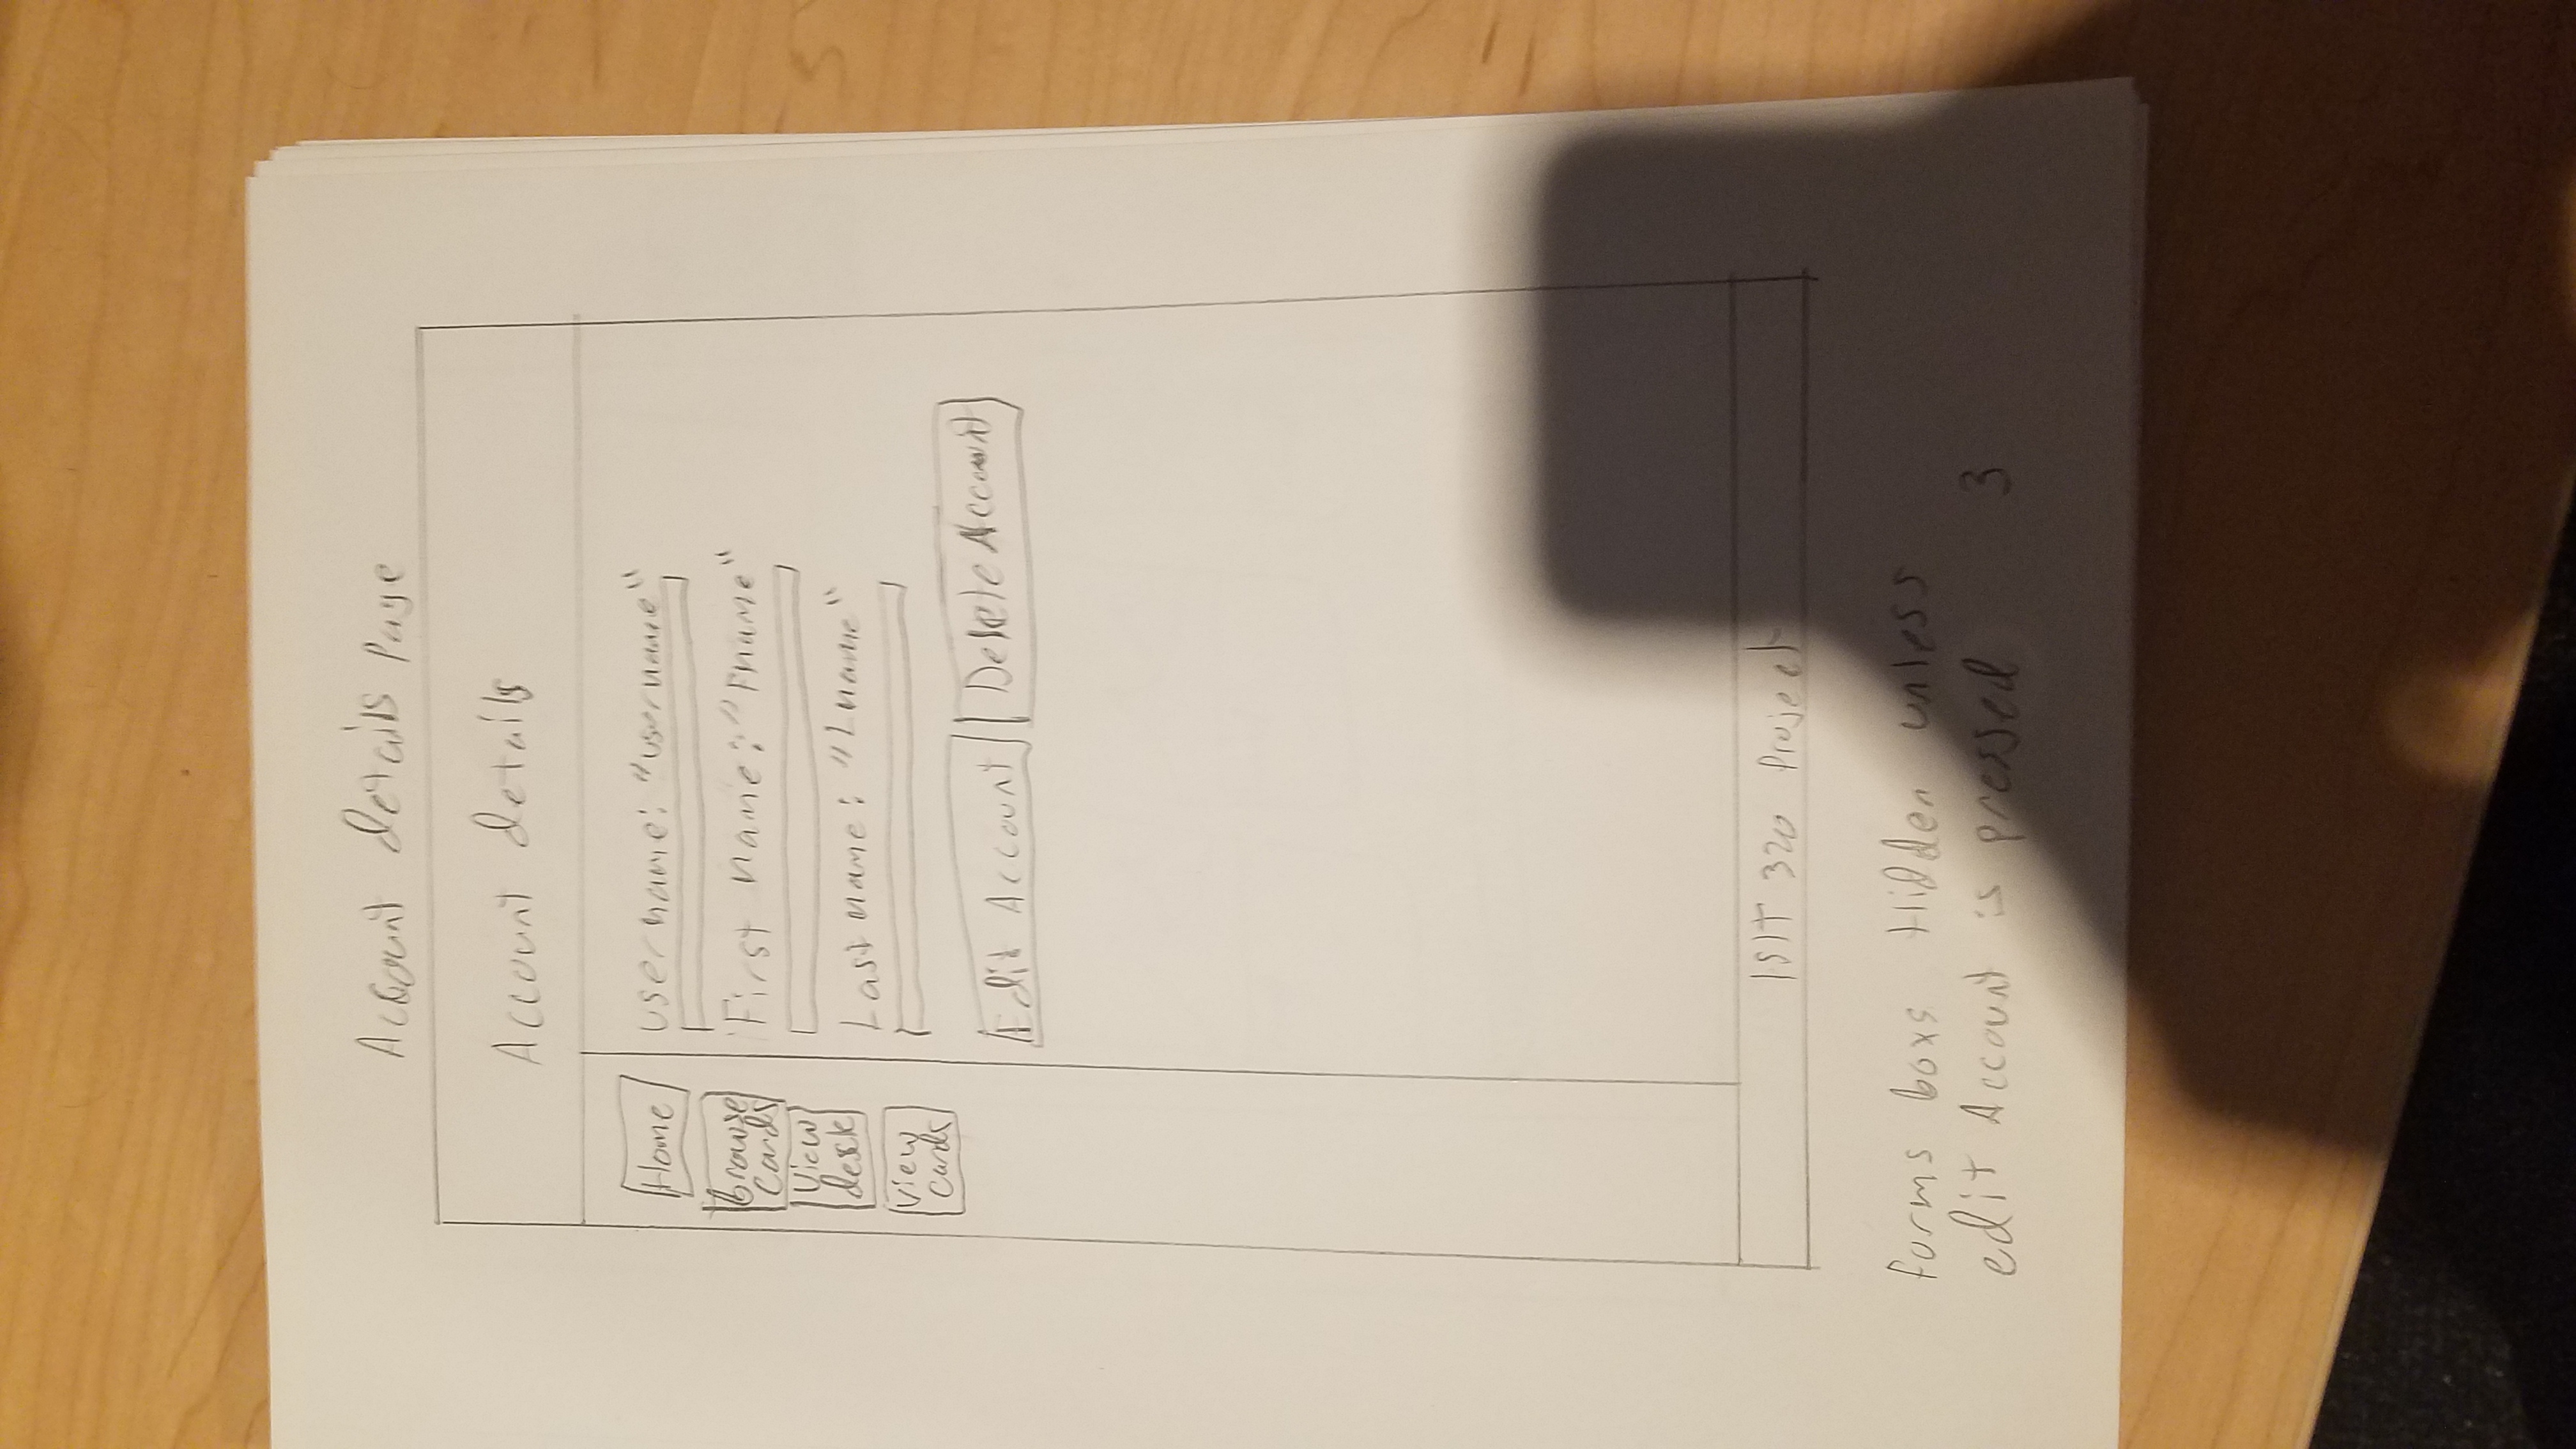 Account details page
Account details
Home
browse
cards
view
desk
view
cards
username: "username"
First name: "Fname"
Last name: "Lname"
Edit Account
Delete Account
ISIT 320 Project
forms boxs Hidden unless
edit Account is pressed
3